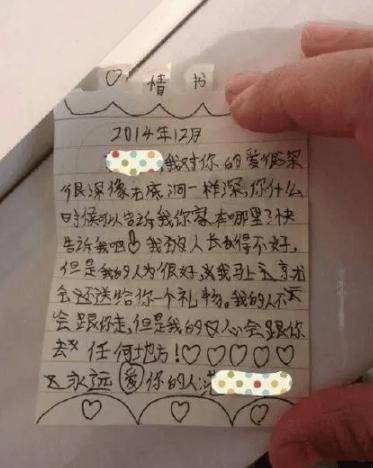 ♡ 情 书
2014年12月
,我对你的爱很深
很深像无底洞一样深,你什么
时候可以告诉我你家在哪里?快
告诉我吧!我人长得不好,
但是我的人为很好,我马上就
会还送给你一个礼物。我的人不
会跟你走,但是我的心会跟你
去任何地方!♡♡♡♡♡
永远爱你的人: